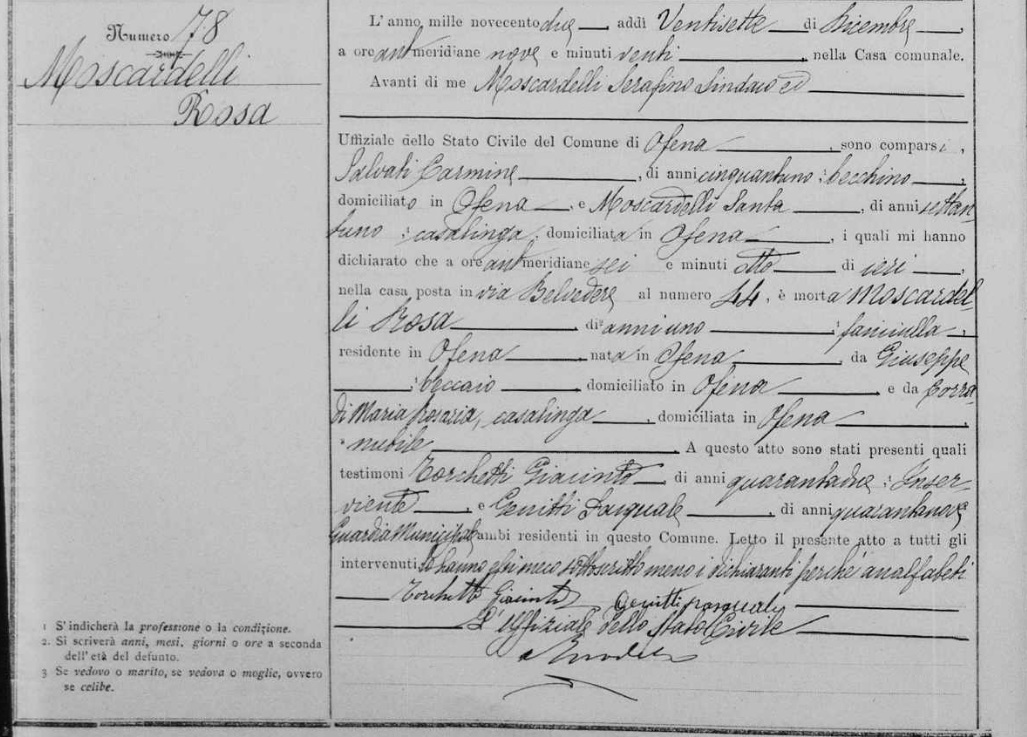 Numero 78
Moscardelli
Rosa
L'anno mille novecentodue, addì Ventisette di Dicembre,
a ore antimeridiane nove e minuti venti, nella Casa comunale.
Avanti di me Moscardelli Serafino Sindaco ed
Uffiziale dello Stato Civile del Comune di Ofena, sono comparsi,
Salvati Carmine, di anni cinquantuno, becchino,
domiciliato in Ofena, e Moscardelli Santa, di anni settan-
tuno, casalinga, domiciliata in Ofena, i quali mi hanno
dichiarato che a ore antimeridiane sei e minuti otto di ieri,
nella casa posta in via Belvedere al numero 44, è morta Moscardel-
li Rosa di anni uno, fanciulla,
residente in Ofena, nata in Ofena, da Giuseppe
, beccaio, domiciliato in Ofena e da Corra-
di Maria Rosaria, casalinga, domiciliata in Ofena
, nubile. A questo atto sono stati presenti quali
testimoni Torchetti Giacinto, di anni quarantadue, Inser-
viente, e Genitti Pasquale, di anni quarantanove
Guardia Municipale ambi residenti in questo Comune. Letto il presente atto a tutti gli
intervenuti lo hanno essi meco sottoscritto meno i dichiaranti perchè analfabeti
Torchetti Giacinto Genitti Pasquale
L'Uffiziale dello Stato Civile
1 S'indicherà la professione o la condizione.
2. Si scriverà anni, mesi, giorni o ore a seconda
dell'età del defunto.
3 Se vedovo o marito, se vedova o moglie, ovvero
se celibe.